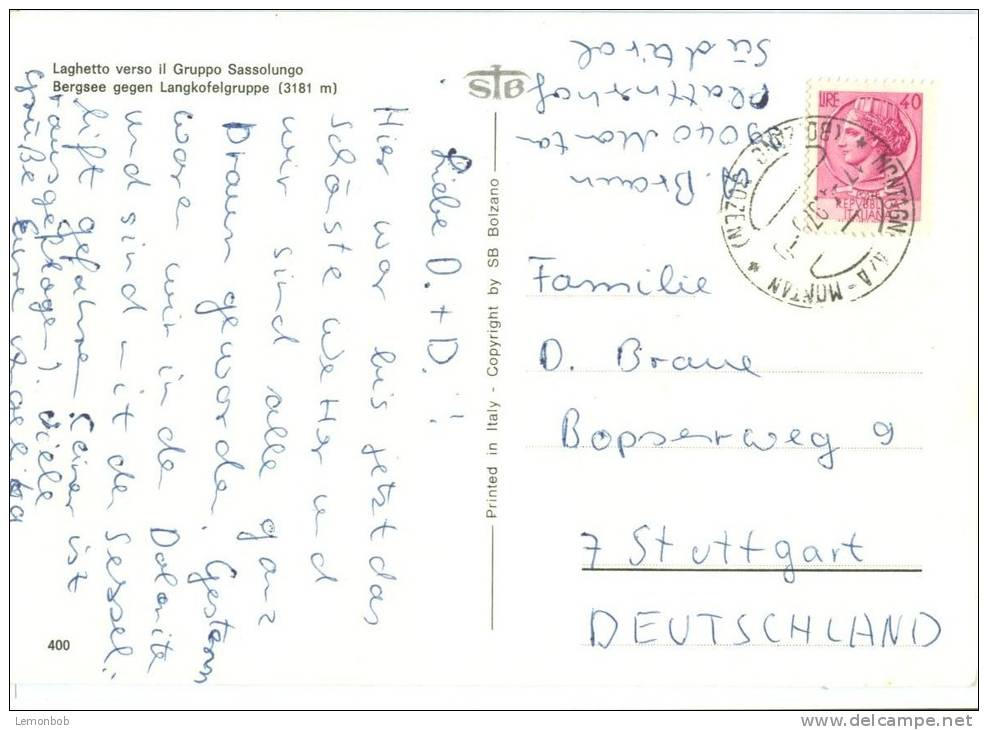 Laghetto verso il Gruppo Sassolungo
Bergsee gegen Langkofelgruppe (3181 m)
STB
Liebe D. + D.!
Hier war bis jetzt das
schönste Wetter und
wir sind alle ganz
braun geworden. Gestern
waren wir in den Dolomiten
und sind mit dem Sessel-
lift gefahren (keiner ist
rausgeflogen). Viele
Grüße Eure
400
Printed in Italy - Copyright by SB Bolzano
Braun
39040 Montan
Plattnerhof
Südtirol
LIRE 40
REPVBBLICA
ITALIANA
MONTAGNA - MONTAN
Familie
D. Braun
Bopserweg 9
7 Stuttgart
DEUTSCHLAND
Lemonbob
www.delcampe.net